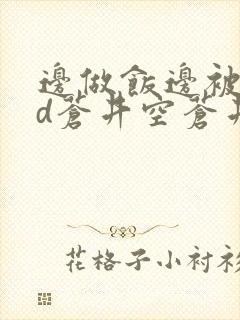 邊做飯邊被
d蒼井空蒼井
花格子小衬衫